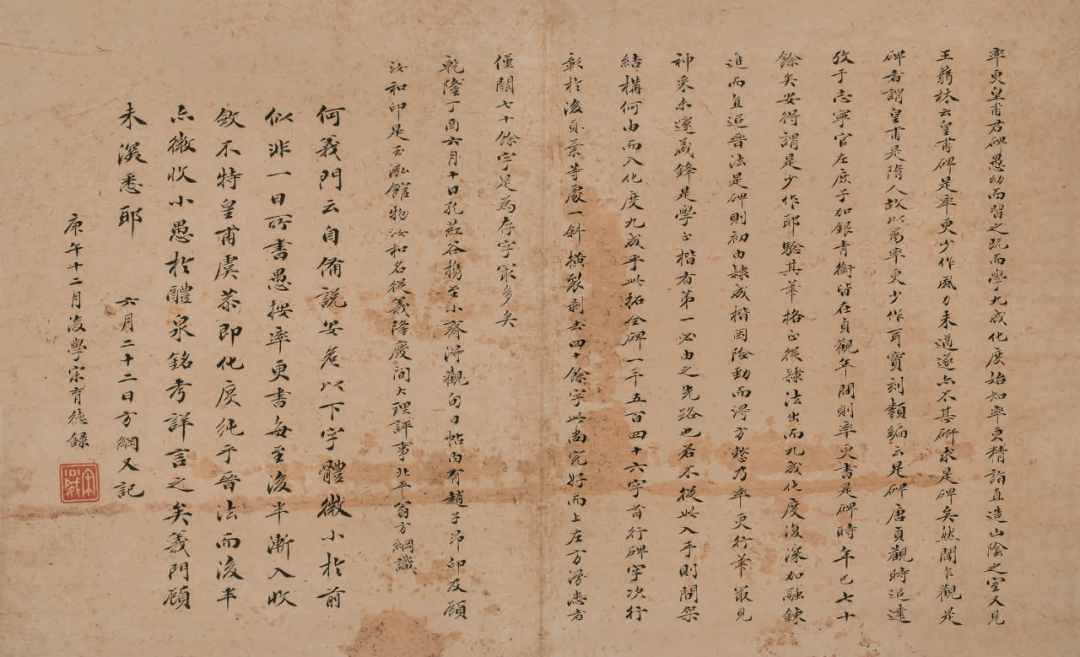 率更皇甫君碑愚幼而習之既而學九成化度始知率更精詣直造山陰之室又見
王蒻林云皇甫碑是率更少作風力未遒遂亦不甚研求是碑矣然閒乍觀是
碑者謂皇甫是隋人故以為率更少作耳寶刻類編云是碑唐貞觀時追建
攷于志寧官左庶子加銀青銜皆在貞觀年閒則率更書是碑時年已七十
餘矣安得謂是少作耶驗其筆格正從隸法出而九成化度復深加融鍊
進而直追晉法是碑則初由隸成楷因險勁而得方整乃率更行筆最見
神采未遽藏鋒是學正楷者第一必由之先路也若不從此入手則閒架
結構何由而入化度九成乎此拓全碑一千五百四十六字首行碑字次行
彰於後貞葉等處一斜橫裂剥去四十餘字此尚完好而上左方漫患者
僅闕七十餘字是為存字最多矣
乾隆丁酉六月十日孔葒谷携至小齋得觀旬日帖內有趙子昂印及顧
汝和印是玉泓館物汝和名從義隆慶間大理評事北平翁方綱識
何義門云自備說安危以下字體微小於前
似非一日所書愚按率更書每至後半漸入收
斂不特皇甫虞恭即化度純乎晉法而後半
亦微收小愚於醴泉銘考詳言之矣義門顧
未深悉耶
六月二十二日方綱又記
庚午十二月後學宗育德錄